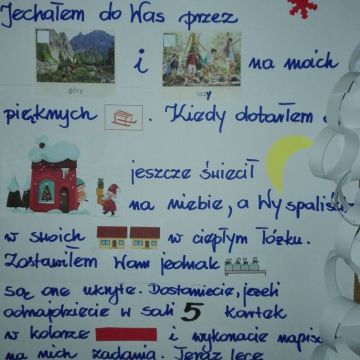 Jechałem do Was przez
i na moich
góry
lasy
pięknych . Kiedy dotarłem
jeszcze świecił
na niebie, a Wy spaliś
w swoich w ciepłym łóżku.
Zostawiłem Wam jednak
są one ukryte. Dostaniecie, jeżeli
odnajdziecie w sali 5 kartek
w kolorze i wykonacie napisa
na nich zadania. Teraz lecę